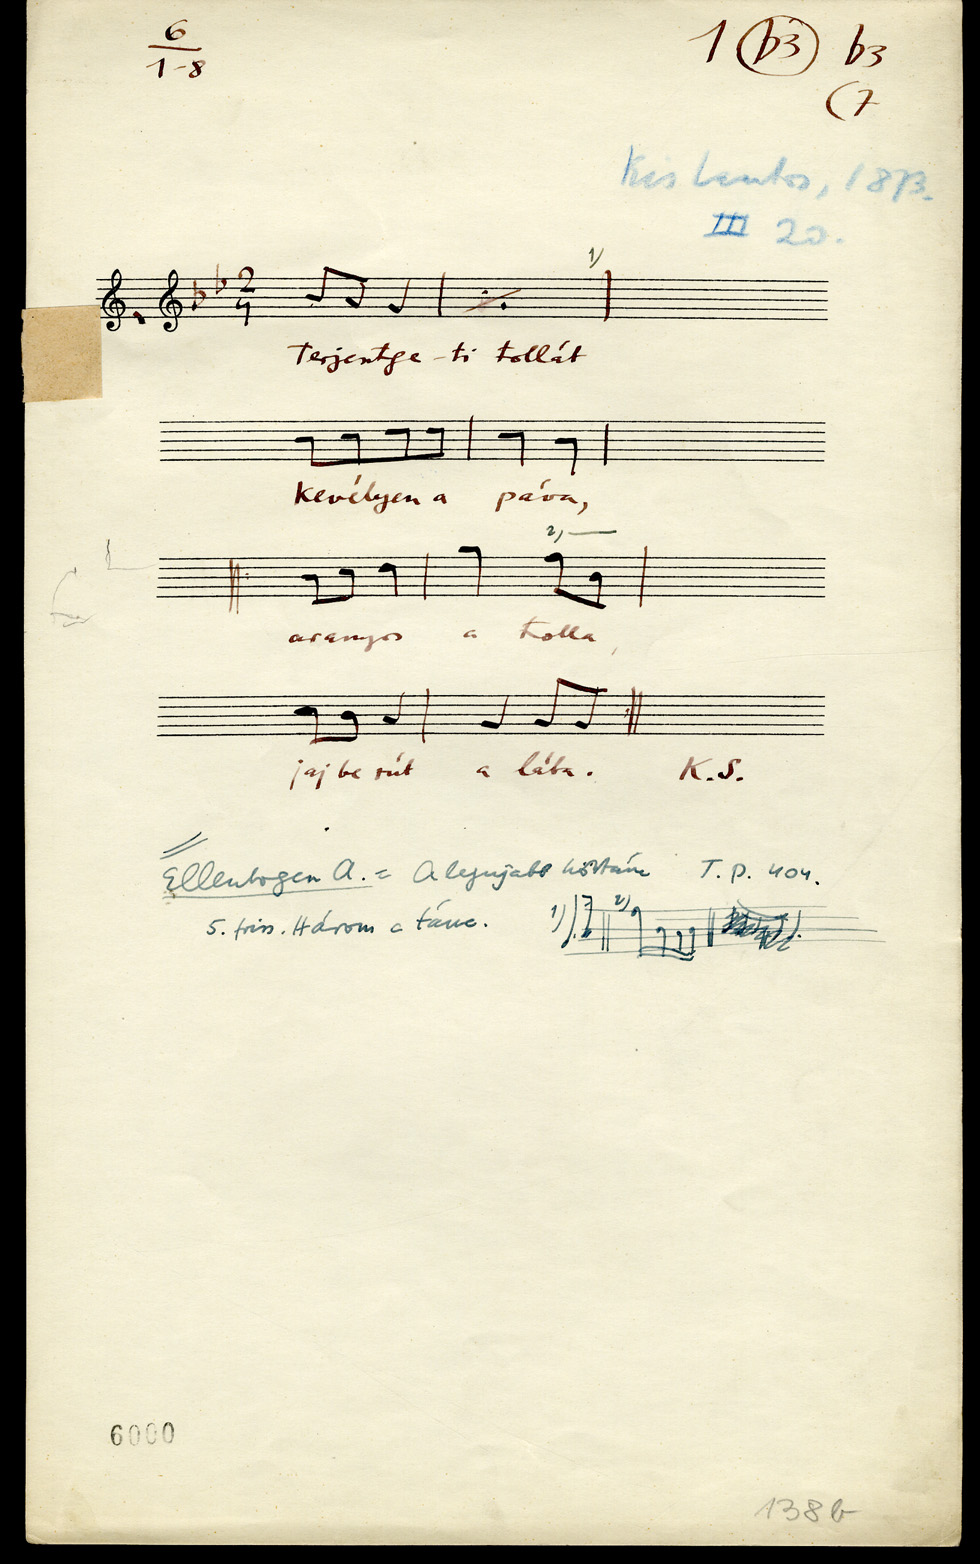 6
1-8
1 b3 b3
(7
Kis Lantos, 1873.
III 20.
2
4
1)
Terjentge-ti tollát
Kevélyen a páva,
2)
aranyos a tolla,
jaj be rút a lába. K.S.
Ellenbogen A. = A legujabb T. p. 404.
5. friss. Három a tánc. 1) 2)
6000
138 b